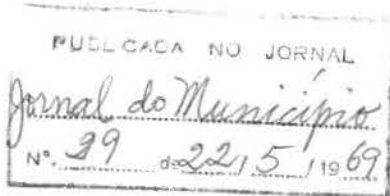 PUBLICADA NO JORNAL
Jornal do Município
Nº. 39 de 22 / 5 / 1969